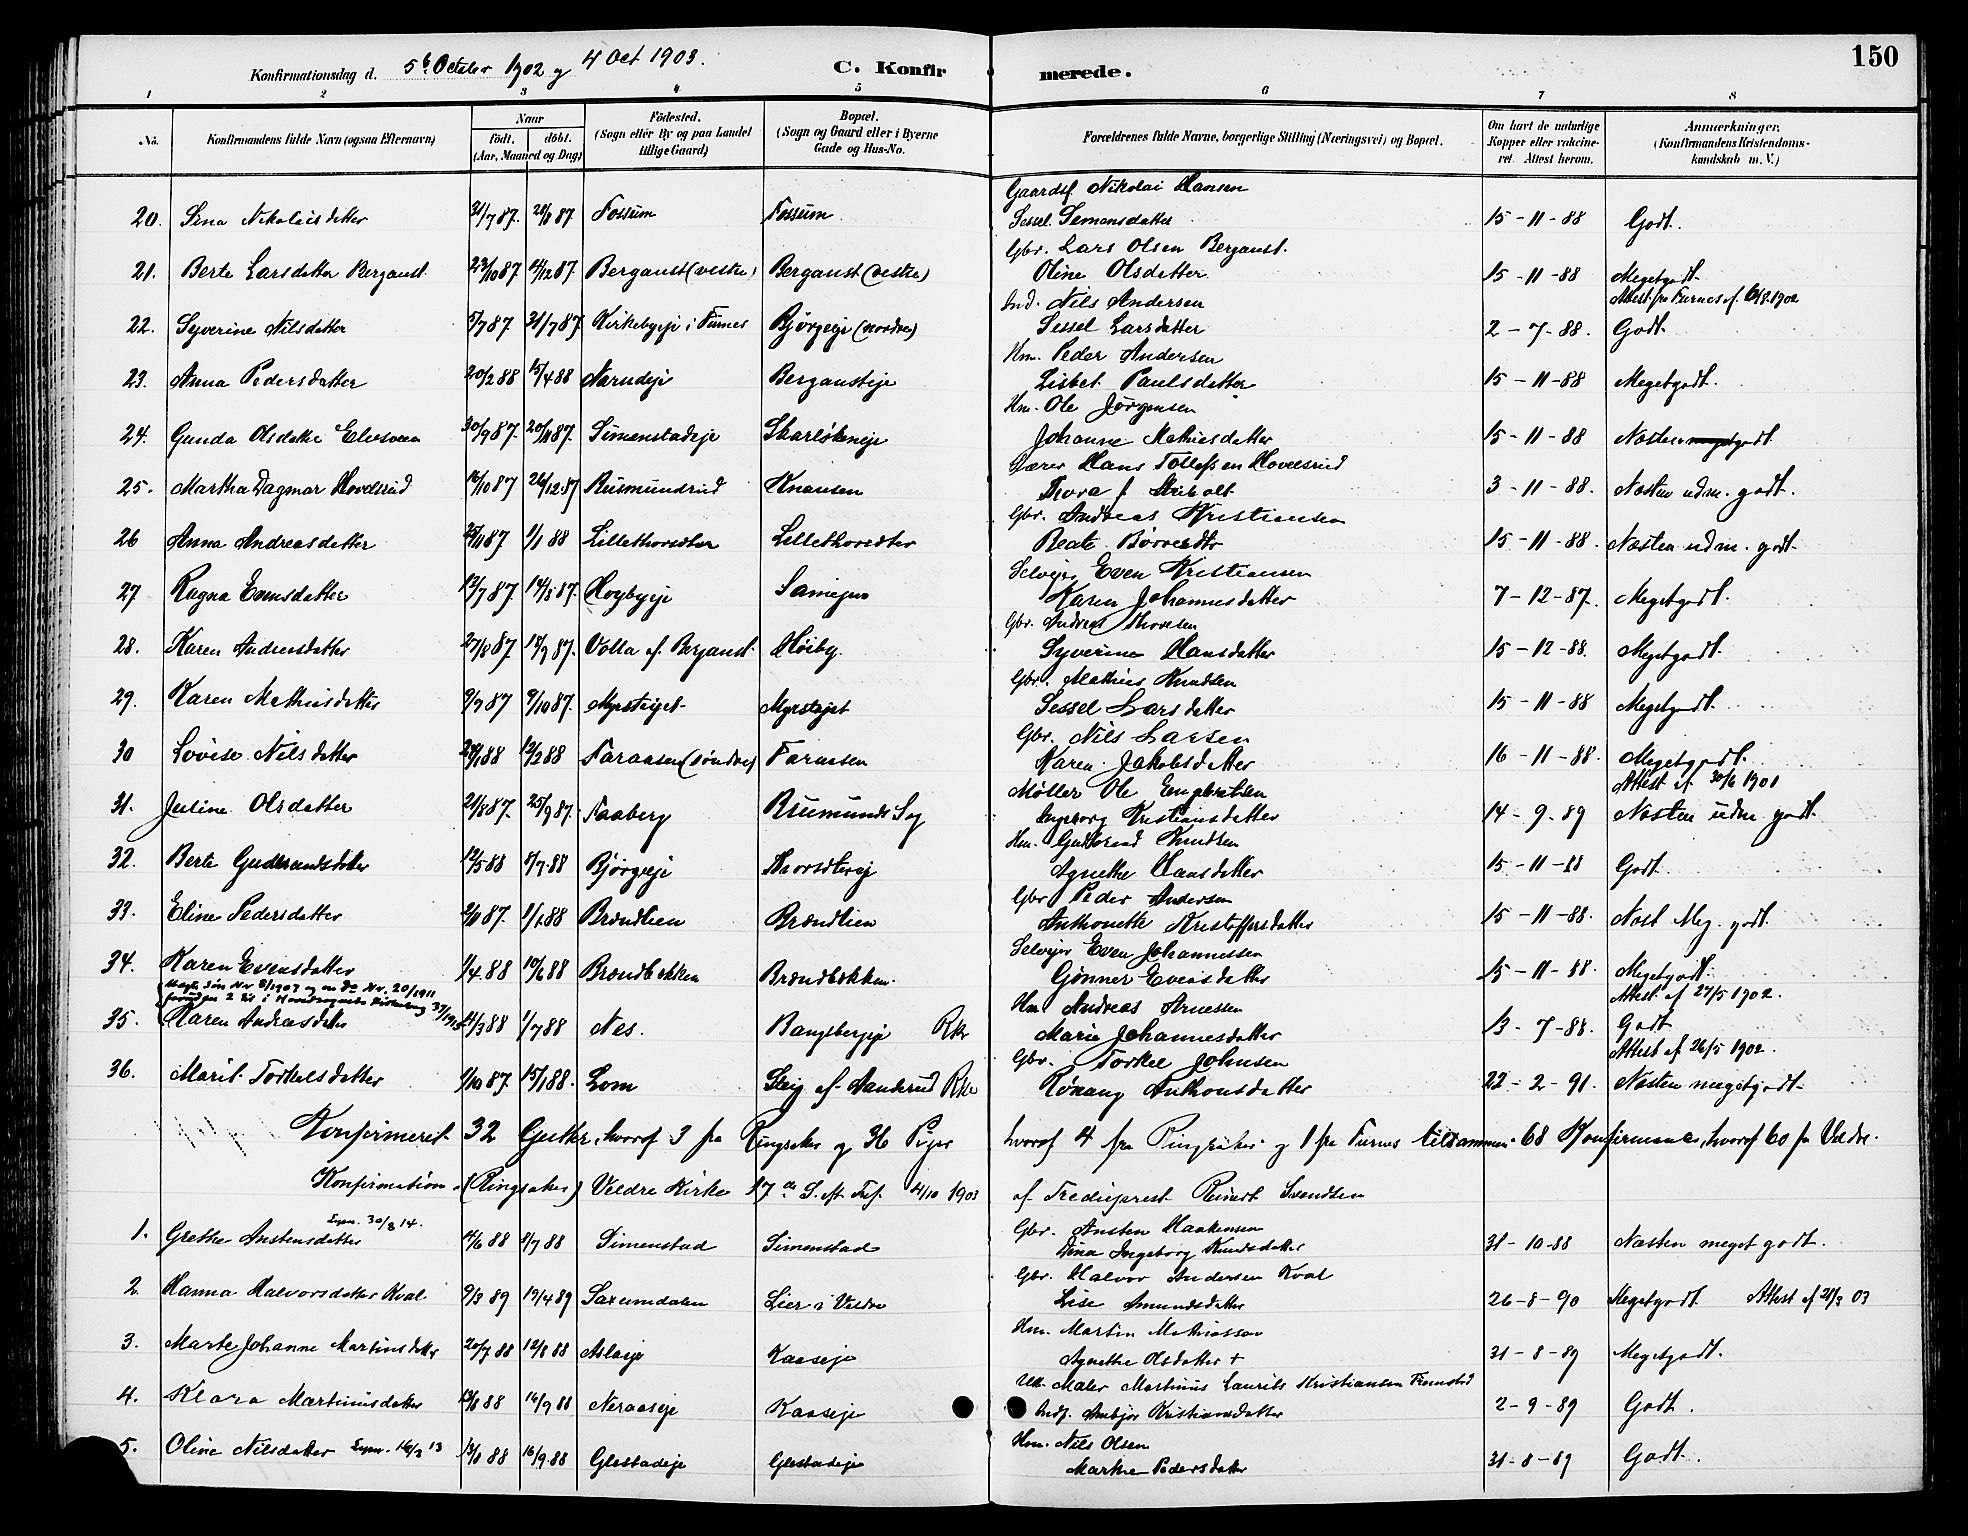 150
Konfirmationsdag d. 5te October 1902 og 4 Oct 1903. C. Konfirmerede.
1 2 3 4 5 6 7 8
No. Konfirmandens fulde Navn (ogsaa Efternavn) Naar födt. döbt. (Aar, Maaned og Dag) Födested. (Sogn eller By og paa Landet tillige Gaard) Bopæl. (Sogn og Gaard eller i Byerne Gade og Hus-No. Forældrenes fulde Navne, borgerlige Stilling (Næringsvei) og Bopæl. Om havt de naturlige Kopper eller vakcineret. Attest herom. Anmærkninger, (Konfirmandens Kristendomskundskab m. V.)
Gaardsf. Nikolai Hansen
20. Nikolaisdatter 31/7 87. 87 Fossum Fossum. Sessel Semensdatter 15-11-88 Godt.
Gbr. Lars Olsen Berganst.
21. Berte Larsdatter Berganst. 23/10 87 14/12 87. Berganst (vestre) Berganst (vestre) Oline Olsdatter 15-11-88 Megetgodt.
Ind. Nils Andersen Attest fra Furnes af 1902
22. Syverine Nilsdatter 5/7 87 31/7 87 Kirkebyeje i Furnes Bjørgeje (nordre) Sessel Larsdatter 2-7-88. Godt.
Hm. Peder Andersen
23. Anna Pedersdatter 20/2 88 15/4 88 Narudeje Berganseje Lisbet Paulsdatter 15-11-88 Megetgodt.
Hm. Ole Jørgensen
24. Gunda Olsdatter 30/9 87. 20/11 87. Simenstadeje Johanne Mathiesdatter 15-11-88 Næsten meget godt.
Hans Tollefsen Hovelsrud
25. Martha Dagmar Hovelsrud 16/10 87 26/12 87 Rusmundrud Knausen Thora 3-11-88. Næsten udm. godt.
Gbr. Andreas Kristiansen
26 Anna Andreasdatter 25/11 87 1/1 88 Beate 15-11-88. Næsten udm. godt.
Selvejer Even Kristiansen
27 Ragna Evensdatter 12/7 87 14/8 87. Høybyeje Karen Johannesdatter 7-12-87. Megetgodt.
Gbr. Andreas Thoresen
28. Karen Andreasdatter 27/8 87 18/9 87. Volla af Berganst. Høiby. Syverine Hansdatter 15-12-88. Megetgodt.
Gbr. Mathias Knudsen
29. Karen Mathiasdatter 9/9 87 9/10 87. Sessel Larsdatter 15-11-88 Megetgodt.
Gbr. Nils Larsen
30 Lovise Nilsdatter 88 12/2 88 Faraasen (søndre) Faraasen Karen Jakobsdatter 16-11-88. Megetgodt.
Møller Ole Engebretsen Attest af 30/6 1901
31. Juline Olsdatter 21/8 87. 25/9 87. Faaberg Brumunds Sag Ingeborg Kristiansdatter 14-9-89 Næsten udm. godt.
Hm. Gudbrand Knudsen
32. Berte Gudbrandsdatter 12/5 88 8/7 88 Bjørgeeje Agnethe Hansdatter 15-11-88 Godt.
Gbr. Peder Andersen
33. Eline Pedersdatter 2/11 87. 1/1 88 Brændlien Brændlien Anthonette Kristoffersdatter 15-11-88. Næst. Meg. godt.
Selvejer Even Johannessen
34. Karen Evensdatter 1/4 88 10/6 88 Brændbekken Brændbekken. Gønner Evensdatter 15-11-88. Megetgodt.
Nr 8/1903 og en do Nr. 20/1911 Hm Andreas Arnesen Attest af 27/5 1902.
35. Karen Andreasdatter 88 1/7 88 Nes. Bangsbergeje Rkr Marie Johannesdatter 13-7-88. Godt
Gbr. Torkel Johnsen Attest af 26/5 1902.
36. Marit Torkelsdatter 1/10 87 15/1 88. Lom Rkr Rønnaug Anthonsdatter 22-2-91. Næsten megetgodt.
Konfirmeret 32 Gutter, hvoraf 3 fra Ringsaker og 36 Piger hvoraf 4 fra Ringsaker og 1 fra Furnes tilsammen 68 Konfirmander, hvoraf 60 fra Veldre.
Konfirmation (Ringsaker) Veldre Kirke 17de S. eft. Tref. 4/10 1903 af Trediepræst Reinert Svendsen
30/8 14. Gbr. Austen Haakensen
1. Grethe Austensdatter 14/6 88 8/7 88 Simenstad Simenstad Dina Ingeborg Knudsdatter 31-10-88 Næsten meget godt.
Gbr. Halvor Andersen Kval
2. Hanna Halvorsdatter Kval 9/3 89 19/4 89 Saxumdalen Lier i Veldre Lise Amundsdatter 26-8-90 Megetgodt. Attest af 21/3 03
Hm. Martin Mathiassen
3. Marte Johanne Martinsdatter 20/7 88 12/8 88 Aslaeje Kaaseje Agnethe Olsdatter + 31-8-89 Megetgodt.
Maler Martinus Laurits Kristiansen
4. Klara Martinusdatter 13/8 88 16/9 88 Neraaseje Kaaseje Kristiansdatter 2-9-89 Godt.
Hm. Nils Olsen
5. Oline Nilsdatter 16/3 13 13/8 88 16/9 88 Glestadeje Glestadeje Marthe Pedersdatter 31-8-89 Godt.